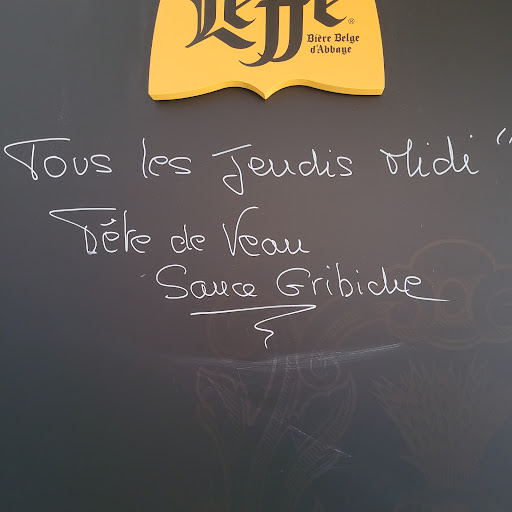 Leffe®
Bière Belge
d'Abbaye
Tous les Jeudis Midi "
Tête de Veau
Sauce Gribiche